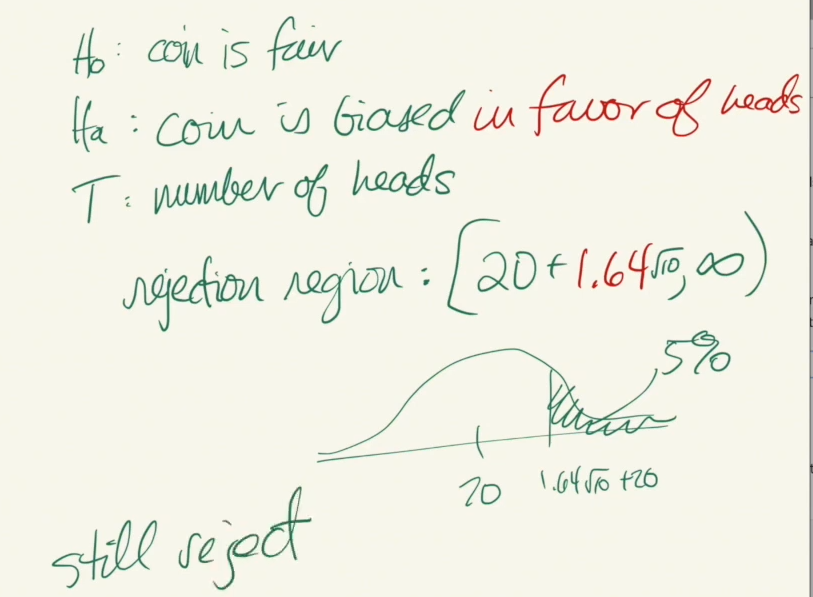 H₀: coin is fair
Hₐ: coin is biased in favor of heads
T: number of heads
rejection region: [20+1.64√10, ∞)
5%
20 1.64√10 +20
still reject